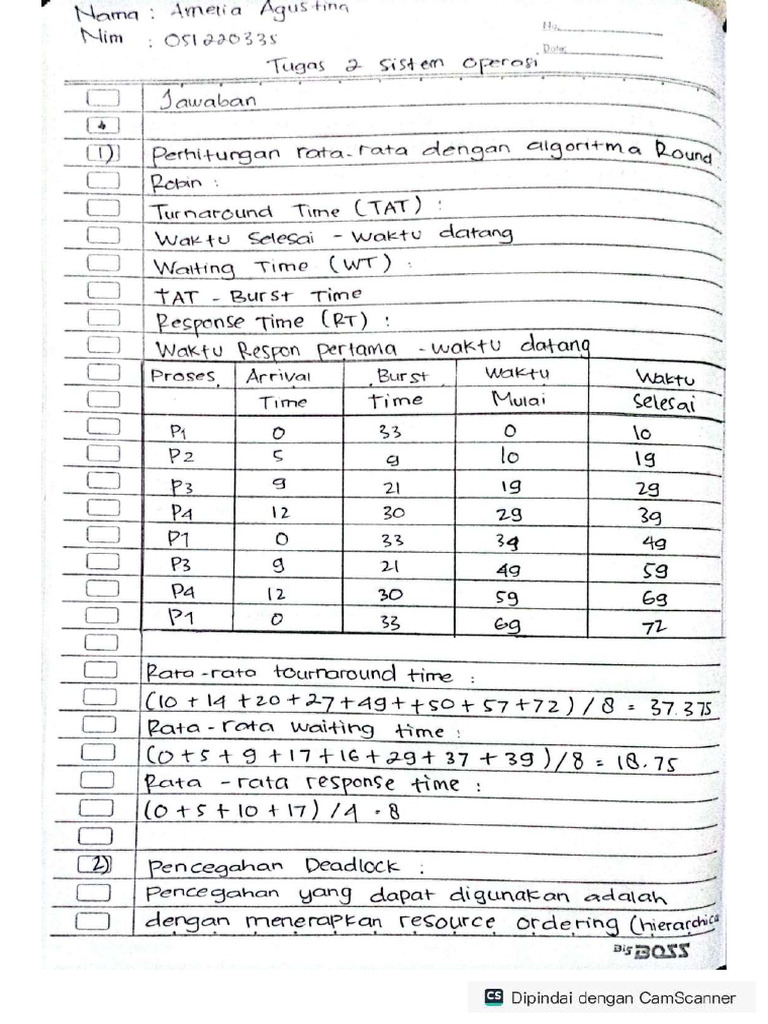 Nama : Amelia Agustina
Nim : 051220335
No.
Date:
Tugas 2 sistem operasi
Jawaban
1) Perhitungan rata-rata dengan algoritma Round
Robin :
Turnaround Time (TAT) :
Waktu Selesai - Waktu datang
Waiting Time (WT) :
TAT - Burst Time
Response Time (RT) :
Waktu Respon pertama - waktu datang
Proses Arrival Burst Waktu Waktu
Time time Mulai selesai
P1 0 33 0 10
P2 5 9 10 19
P3 9 21 19 29
P4 12 30 29 39
P1 0 33 39 49
P3 9 21 49 59
P4 12 30 59 69
P1 0 33 69 72
Rata-rata tournaround time :
(10 + 14 + 20 + 27 + 49 + + 50 + 57 + 72) / 8 = 37.375
Rata-rata waiting time :
(0 + 5 + 9 + 17 + 16 + 29 + 37 + 39) / 8 = 18.75
Rata-rata response time :
(0 + 5 + 10 + 17) / 4 = 8
2) Pencegahan Deadlock :
Pencegahan yang dapat digunakan adalah
dengan menerapkan resource ordering (hierarchica
Big BOSS
CS Dipindai dengan CamScanner